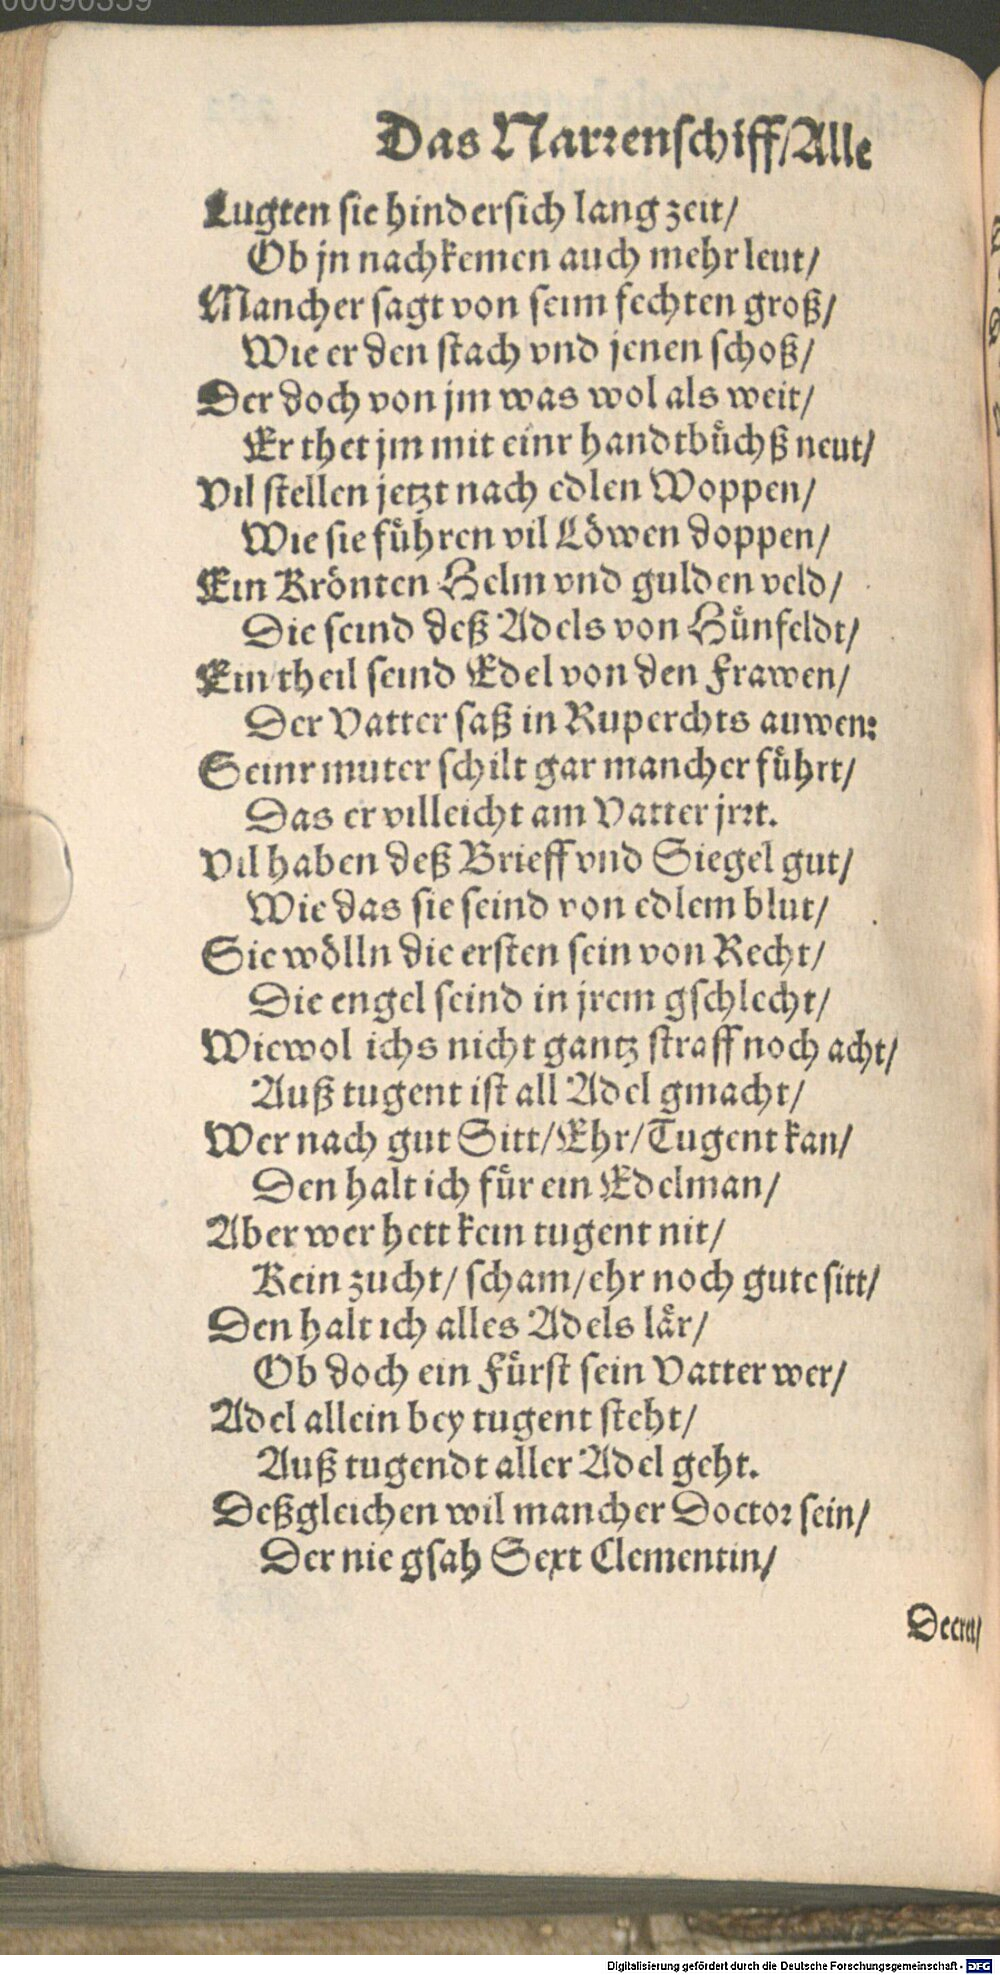 00090359
Das Narrenschiff/ Alle
Lugten sie hindersich lang zeit/
Ob jn nachkemen auch mehr leut/
Mancher sagt von seim fechten groß/
Wie er den stach vnd jenen schoß/
Der doch von jm was wol als weit/
Er thet jm mit einr handtbuͤchß neut/
Vil stellen jetzt nach edlen Woppen/
Wie sie fuͤhren vil Loͤwen doppen/
Ein Kroͤnten Helm vnd gulden veld/
Die seind deß Adels von Huͤnfeldt/
Ein theil seind Edel von den Frawen/
Der Vatter saß in Ruperchts auwen:
Seinr muter schilt gar mancher fuͤhrt/
Das er villeicht am Vatter jrrt.
Vil haben deß Brieff vnd Siegel gut/
Wie das sie seind von edlem blut/
Sie woͤlln die ersten sein von Recht/
Die engel seind in jrem gschlecht/
Wiewol ichs nicht gantz straff noch acht/
Auß tugent ist all Adel gmacht/
Wer nach gut Sitt/ Ehr/ Tugent kan/
Den halt ich fuͤr ein Edelman/
Aber wer hett kein tugent nit/
Kein zucht/ scham/ ehr noch gute sitt/
Den halt ich alles Adels laͤr/
Ob doch ein Fuͤrst sein Vatter wer/
Adel allein bey tugent steht/
Auß tugendt aller Adel geht.
Deßgleichen wil mancher Doctor sein/
Der nie gsah Sext Clementin/
Decret/
Digitalisierung gefördert durch die Deutsche Forschungsgemeinschaft - DFG